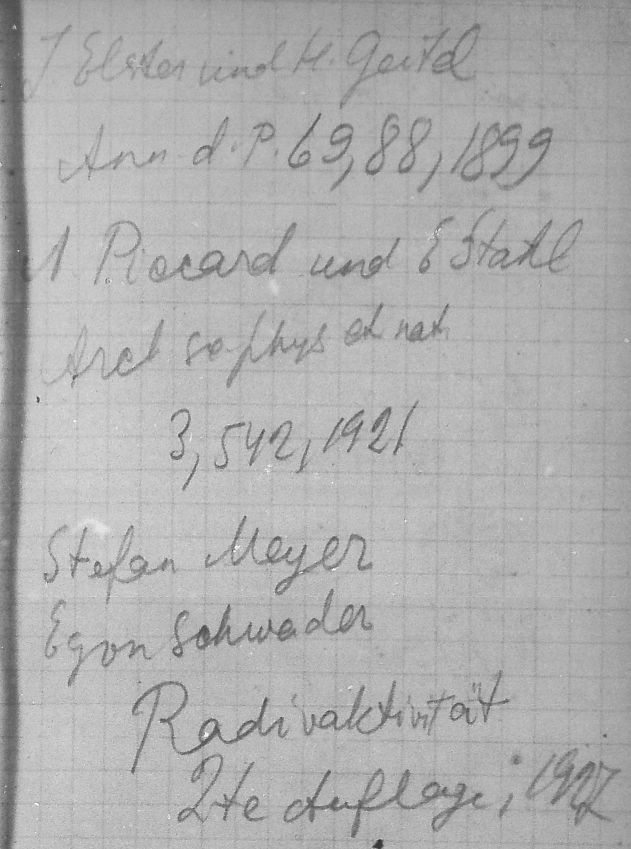 J Elster und H. Geitel
Ann d. P. 69, 88, 1899
A. Piccard und E Stahl
Arch sc phys et nat
3, 542, 1921
Stefan Meyer
Egon Schwader
Radioaktivität
2te Auflage, 1927